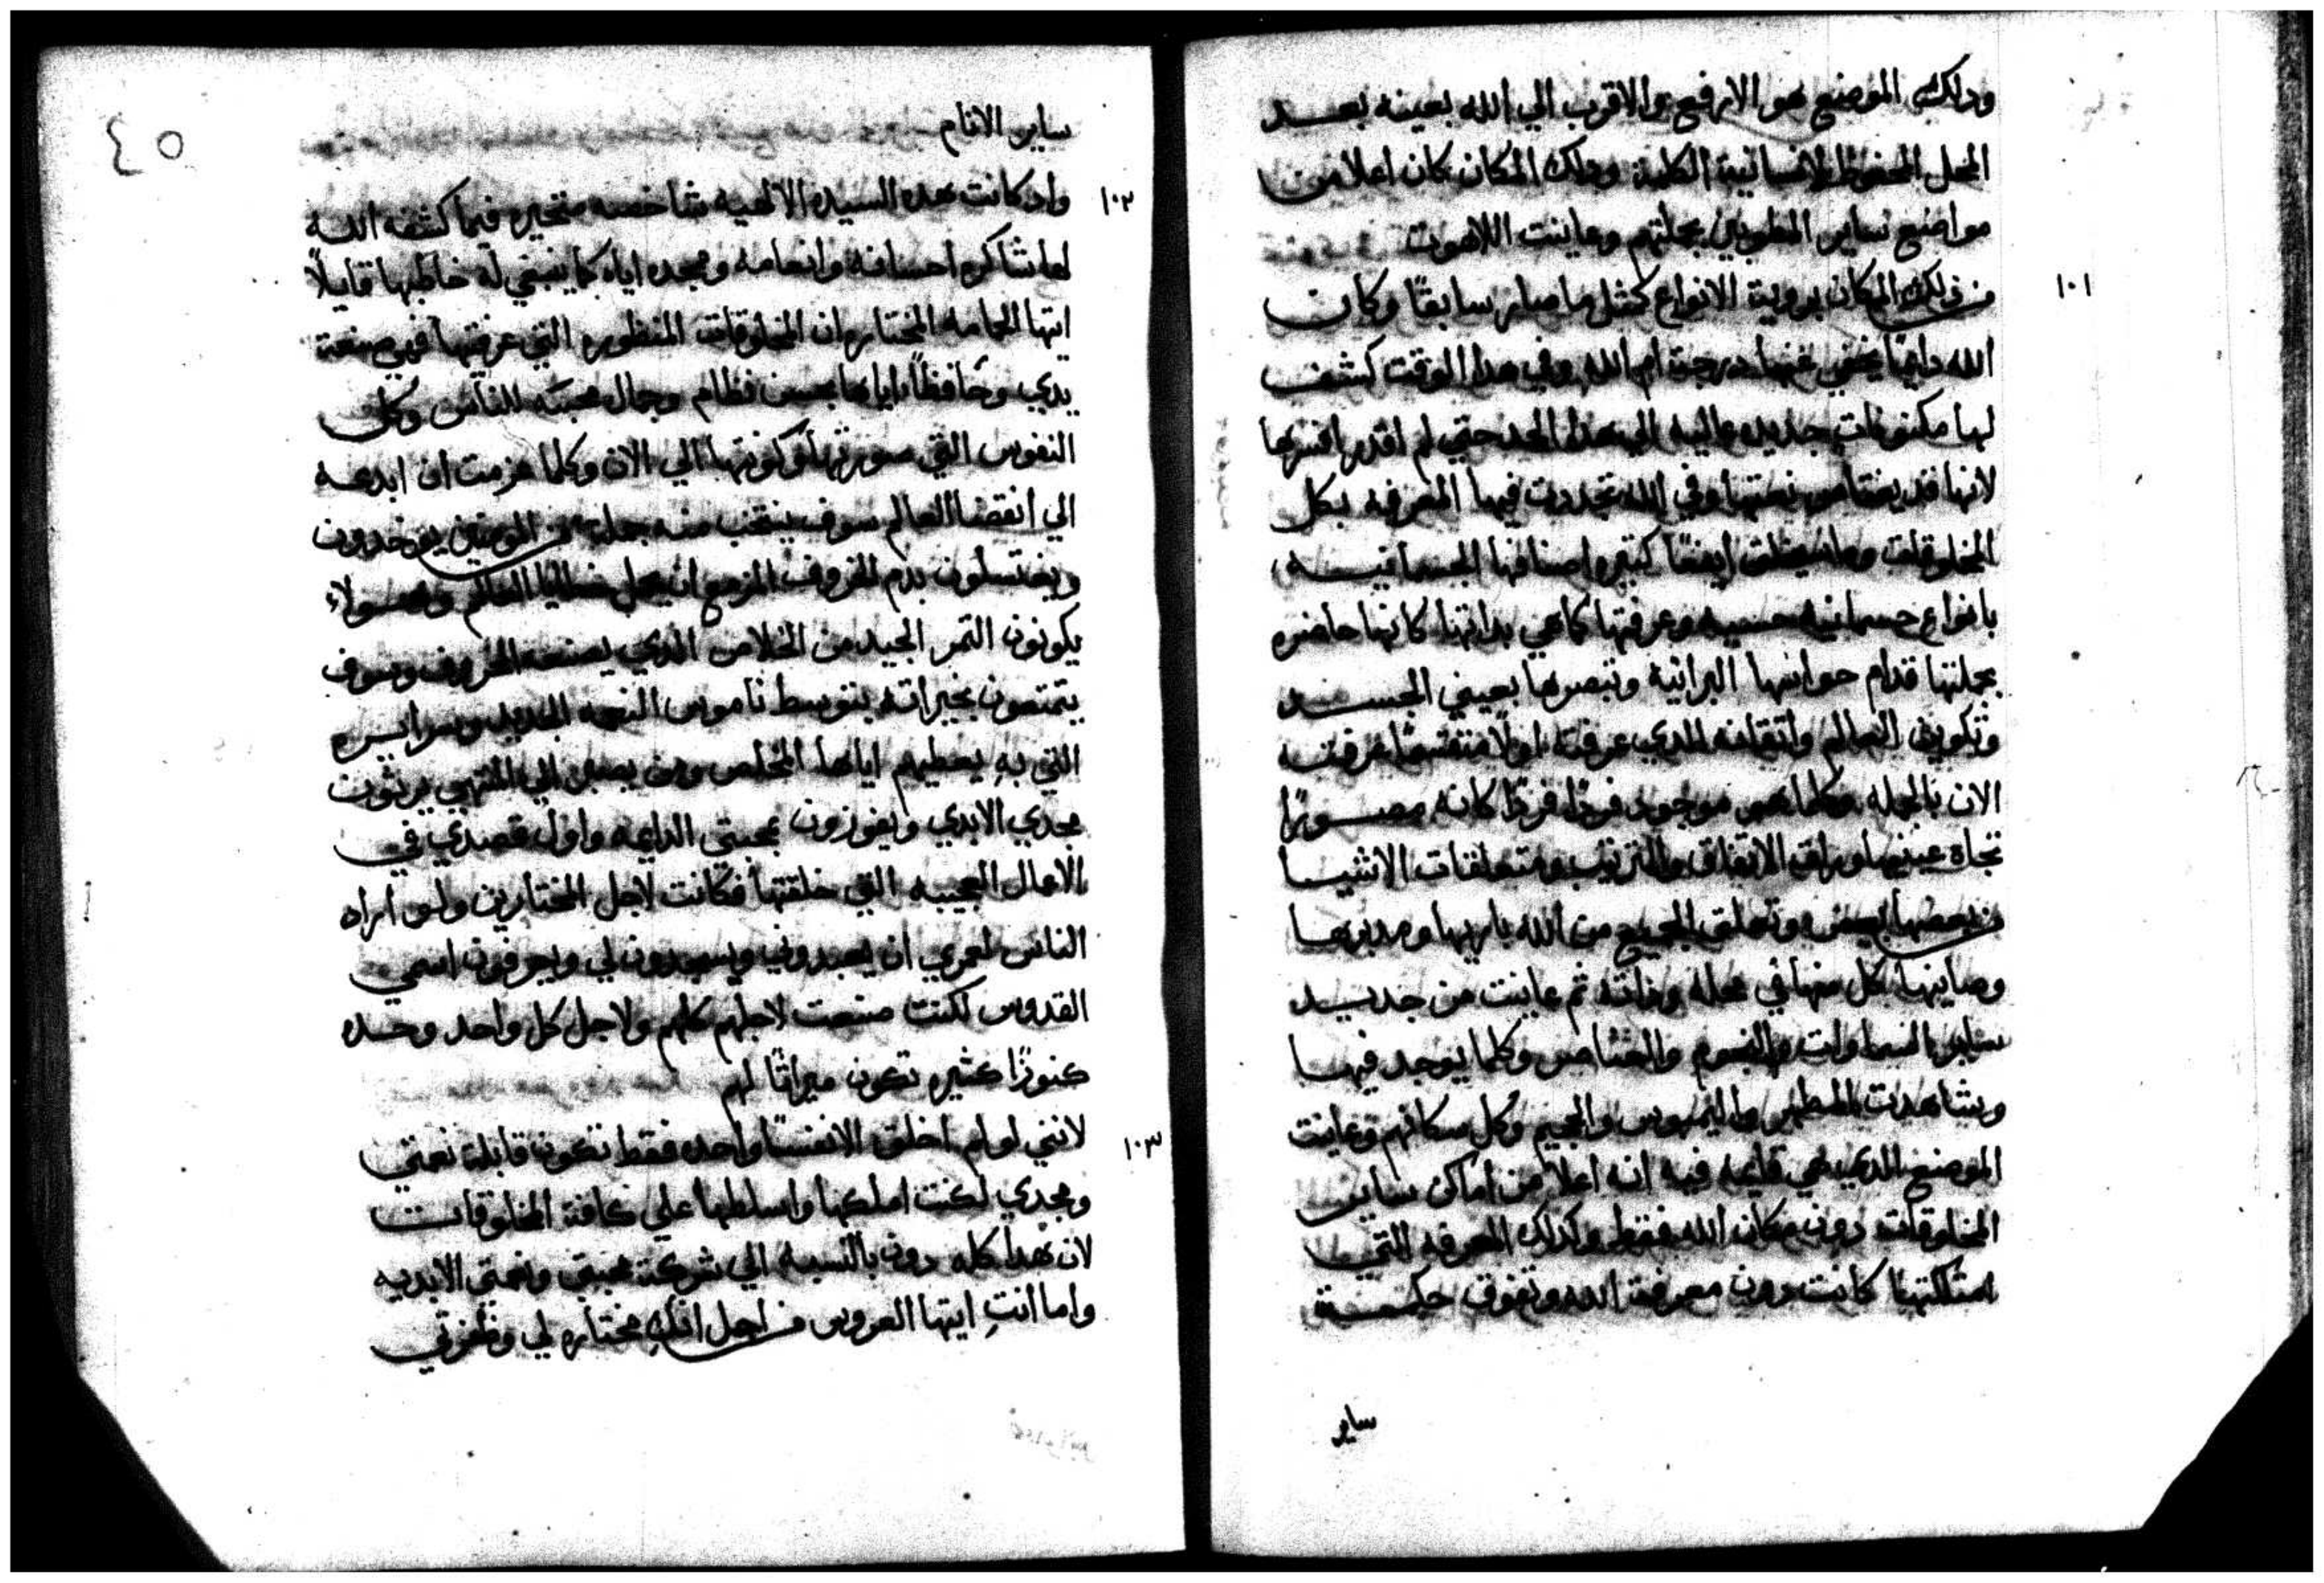 ودلك الموضع هو الارفع والاقرب الي الله بعينه بعد
المحل المحفوظ للانسانية الكلية ودلك المكان كان اعلا من
مواضع ساير الطوبين بجملتهم وعاينت اللاهوت
١٠١
من دلك المكان بروية الانواع كمثل ما صار سابقًا وكان
الله دايمًا يخفي عنها درجة ام الله وفي هدا الوقت كشف
لها مكنونات جديده عاليه الي هدا الحد حتي لم اقدر افسرها
لانها قد نعمتها وفي الله تجددت فيها المعرفه بكل
المخلوقات وما سيخلق ايضًا كتيره اصنافها الجسمانيه
بانواع جسمانيه حسيه وعرفتها كما هي بداتها كانها حاضره
بجملتها قدام حواسها البرانيه وتبصرها بعيني الجسد
وتكوين العالم واتقانه الدي عرفته اولًا منقسمًا عرفته
الان بالجمله وكلما هو موجود فردًا فردًا كانه مصورًا
تجاه عينيها ورات الاتفاق والترتيب ومتعلقات الاشيا
من بعضها بعض وتعلق الجميع من الله باريها ومدبرها
وصاينها كل منها في محله وداته ثم عاينت من جديد
ساير السماوات والنجوم والعناصر وكلما يوجد فيها
وشاهدت المطهر والليمبوس والجحيم وكل سكانهم وعاينت
الموضع الدي هي قايمه فيه انه اعلا من اماكن ساير
المخلوقات دون مكان الله فقط وكدلك المعرفه التي
امتلكتها كانت دون معرفة الله وتفوق حكمة
ساير
٤٥
ساير الانام
١٠٢
واد كانت هده السيده الالهيه شاخصه متحيره فيما كشفه الله
لها شاكره احسانه وانعامه ومجده اياه كما ينبغي له خاطبها قايلًا
ايتها الحمامه المختاره ان المخلوقات المنظوره التي عرفتها فهي صنعة
يدي وحافظًا اياها بحسن نظام وجمال محبة للناس وكل
النفوس التي صورتها وكونتها الي الان وكلما عزمت ان ابدعه
الي انقضا العالم سوف ينتخب منه جملة من المومنين يوخدون
ويغتسلون بدم الخروف المزمع ان يحمل خطايا العالم وهولاء
يكونون التمر الجيد من الخلاص الدي يصنعه الخروف وسوف
يتمتعون بخيراته بتوسط ناموس النعمه الجديد وسرايره
التي به يعطيهم اياها المخلص ومن يصبر الي المنتهي يرثون
مجدي الابدي ويفوزون بمحبتي الدايمه واول قصدي في
الاعمال العجيبه التي خلقتها فكانت لاجل المختارين ولو اراد
الناس لعمري ان يعبدوني ويسجدون لي ويعرفون اسمي
القدوس لكنت صنعت لاجلهم كلهم ولاجل كل واحد وحده
كنوزًا كثيره تكون ميراثًا لهم
١٠٣
لانني لو لم اخلق الا نفسًا واحده فقط تكون قابلة نعمتي
ومجدي لكنت املكها واسلطها علي كافة المخلوقات
لان هدا كله دون بالنسبه الي شركة محبتي ونعمتي الابديه
واما انتِ ايتها العروس من اجل انكِ مختاره لي وظفرتي